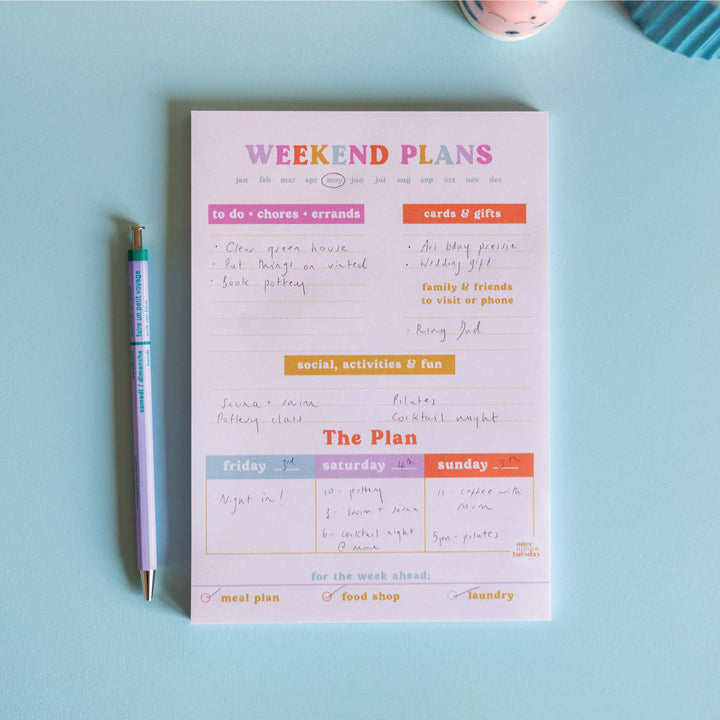 WEEKEND PLANS
jan feb mar apr may jun jul aug sep oct nov dec
to do • chores • errands
• Clear green house
• Put things on vinted
• Book pottery
cards & gifts
• Ari bday pressie
• Wedding gift
family & friends
to visit or phone
• Ring Dad
social, activities & fun
Sauna + swim
Pottery class
Pilates
Cocktail night
The Plan
friday 3rd
Night in!
saturday 4th
10 - pottery
3 - swim + sauna
6 - cocktail night
@ mine
sunday 5th
11 - coffee with
Mum
5pm - pilates
once
upon a
tuesday
for the week ahead:
meal plan food shop laundry
samedi / dimanche
faire un petit voyage